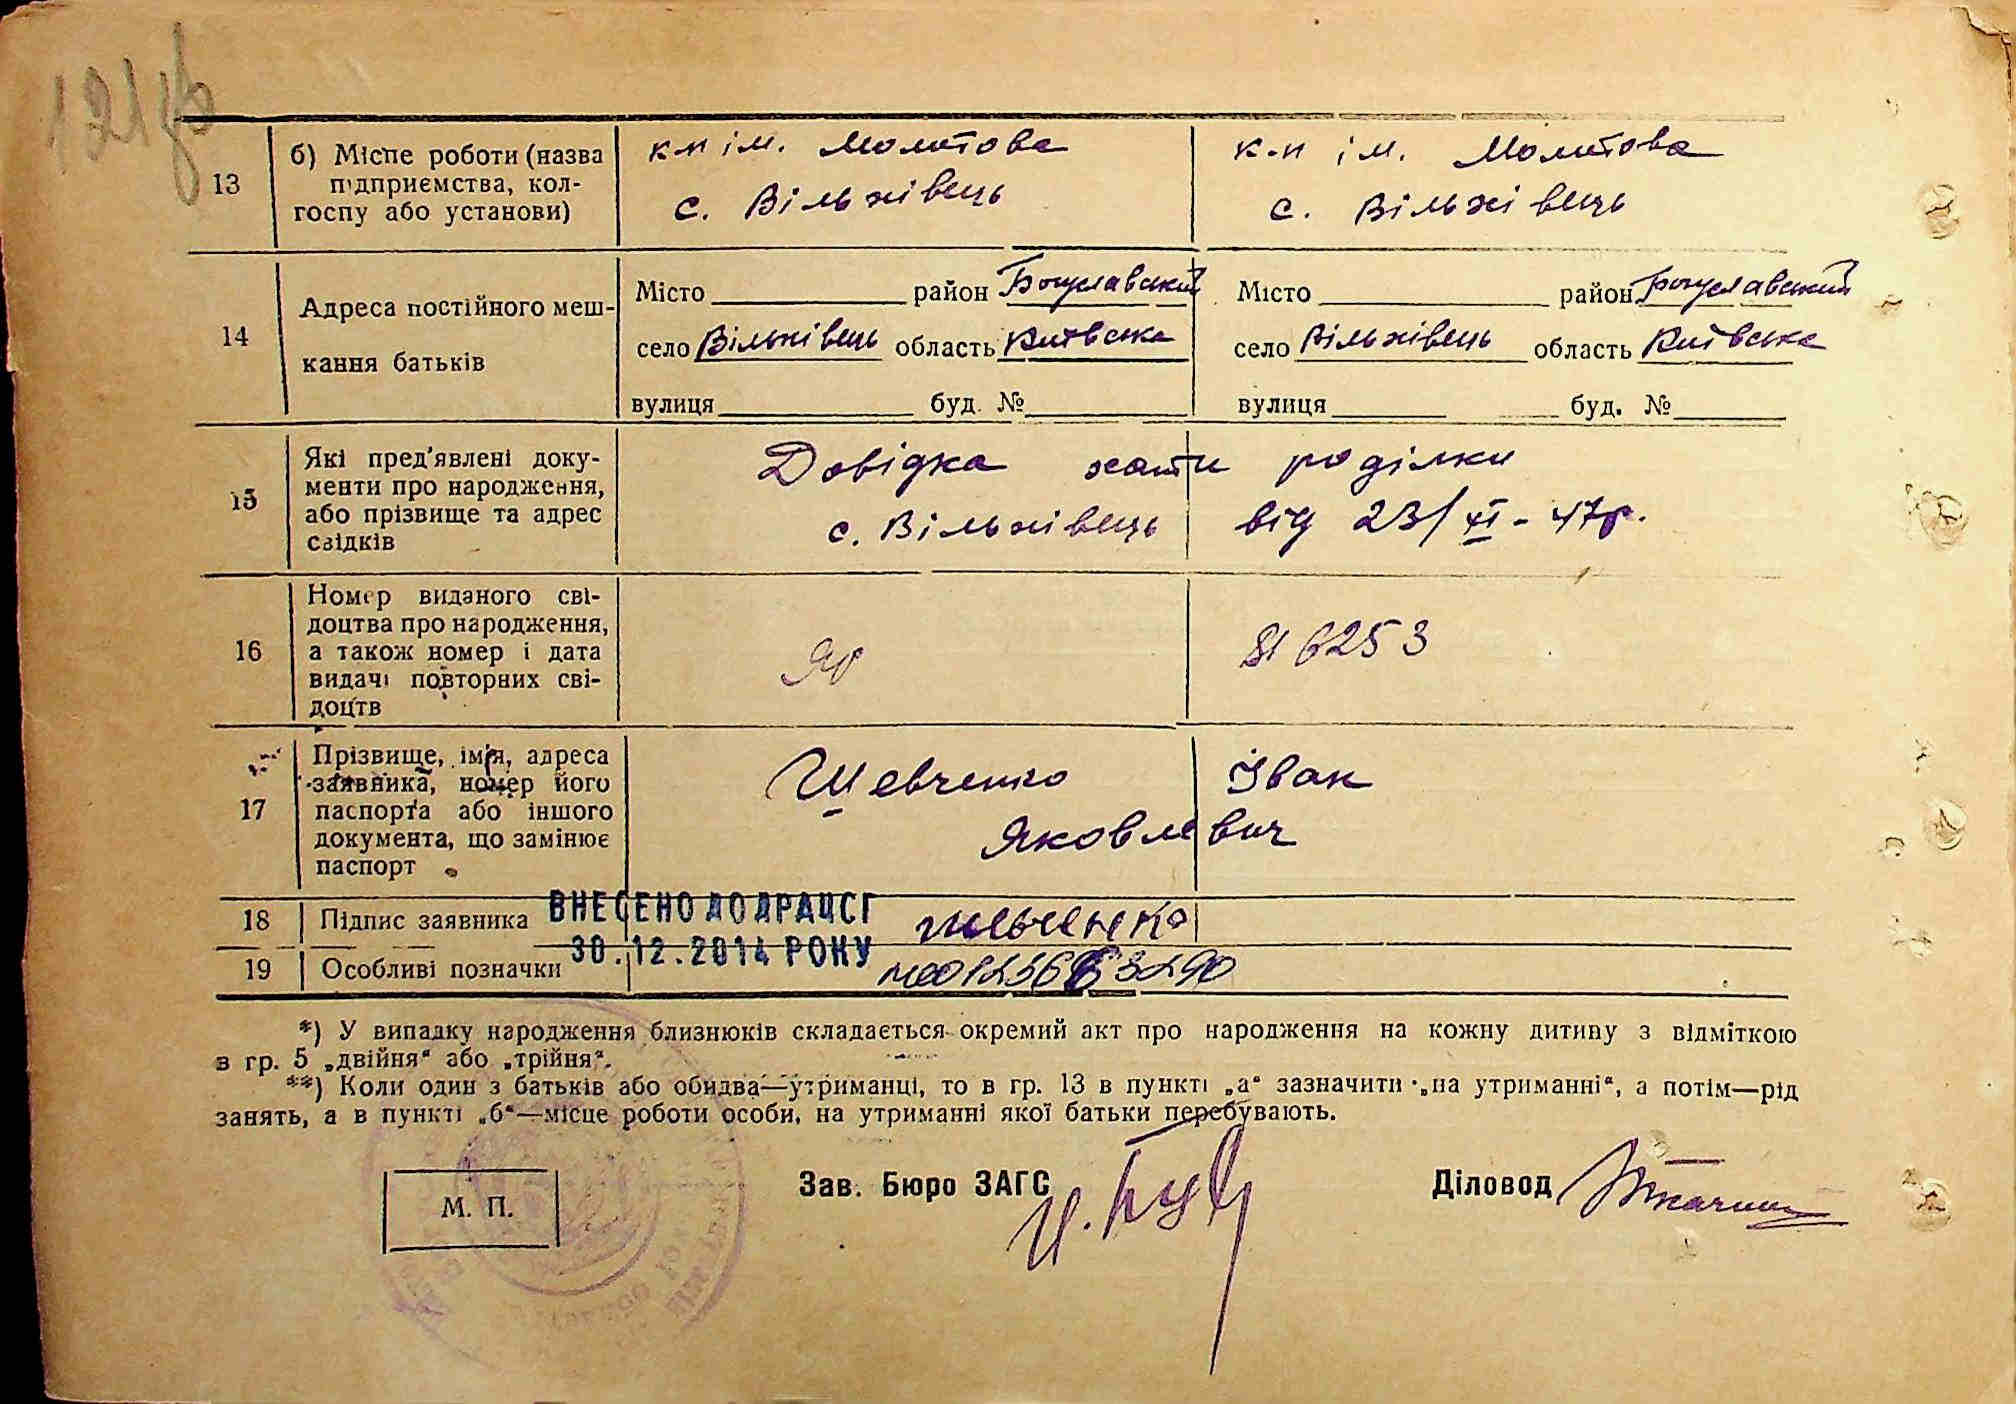 13
б) Місце роботи (назва
підприємства, кол-
госпу або установи)
к-п ім. Молотова
с. Вільхівець
к-п ім. Молотова
с. Вільхівець
14
Адреса постійного меш-
кання батьків
Місто район Богуславський
село Вільхівець область Київська
вулиця буд. №
Місто район Богуславський
село Вільхівець область Київська
вулиця буд. №
15
Які пред'явлені доку-
менти про народження,
або прізвище та адрес
свідків
Довідка хати роділки
с. Вільхівець від 23/XI-47р.
16
Номер виданого сві-
доцтва про народження,
а також номер і дата
видачі повторних сві-
доцтв
6253
17
Прізвище, ім'я, адреса
заявника, номер його
паспорта або іншого
документа, що замінює
паспорт
Шевченко Іван
Яковлевич
18 Підпис заявника
ВНЕСЕНО ДО ДРАЦСГ
30.12.2014 РОКУ
19 Особливі позначки
*) У випадку народження близнюків складається окремий акт про народження на кожну дитину з відміткою
в гр. 5 „двійня“ або „трійня“.
**) Коли один з батьків або обидва—утриманці, то в гр. 13 в пункті „а“ зазначити „на утриманні“, а потім—рід
занять, а в пункті „б“—місце роботи особи, на утриманні якої батьки перебувають.
М. П.
Зав. Бюро ЗАГС
Діловод